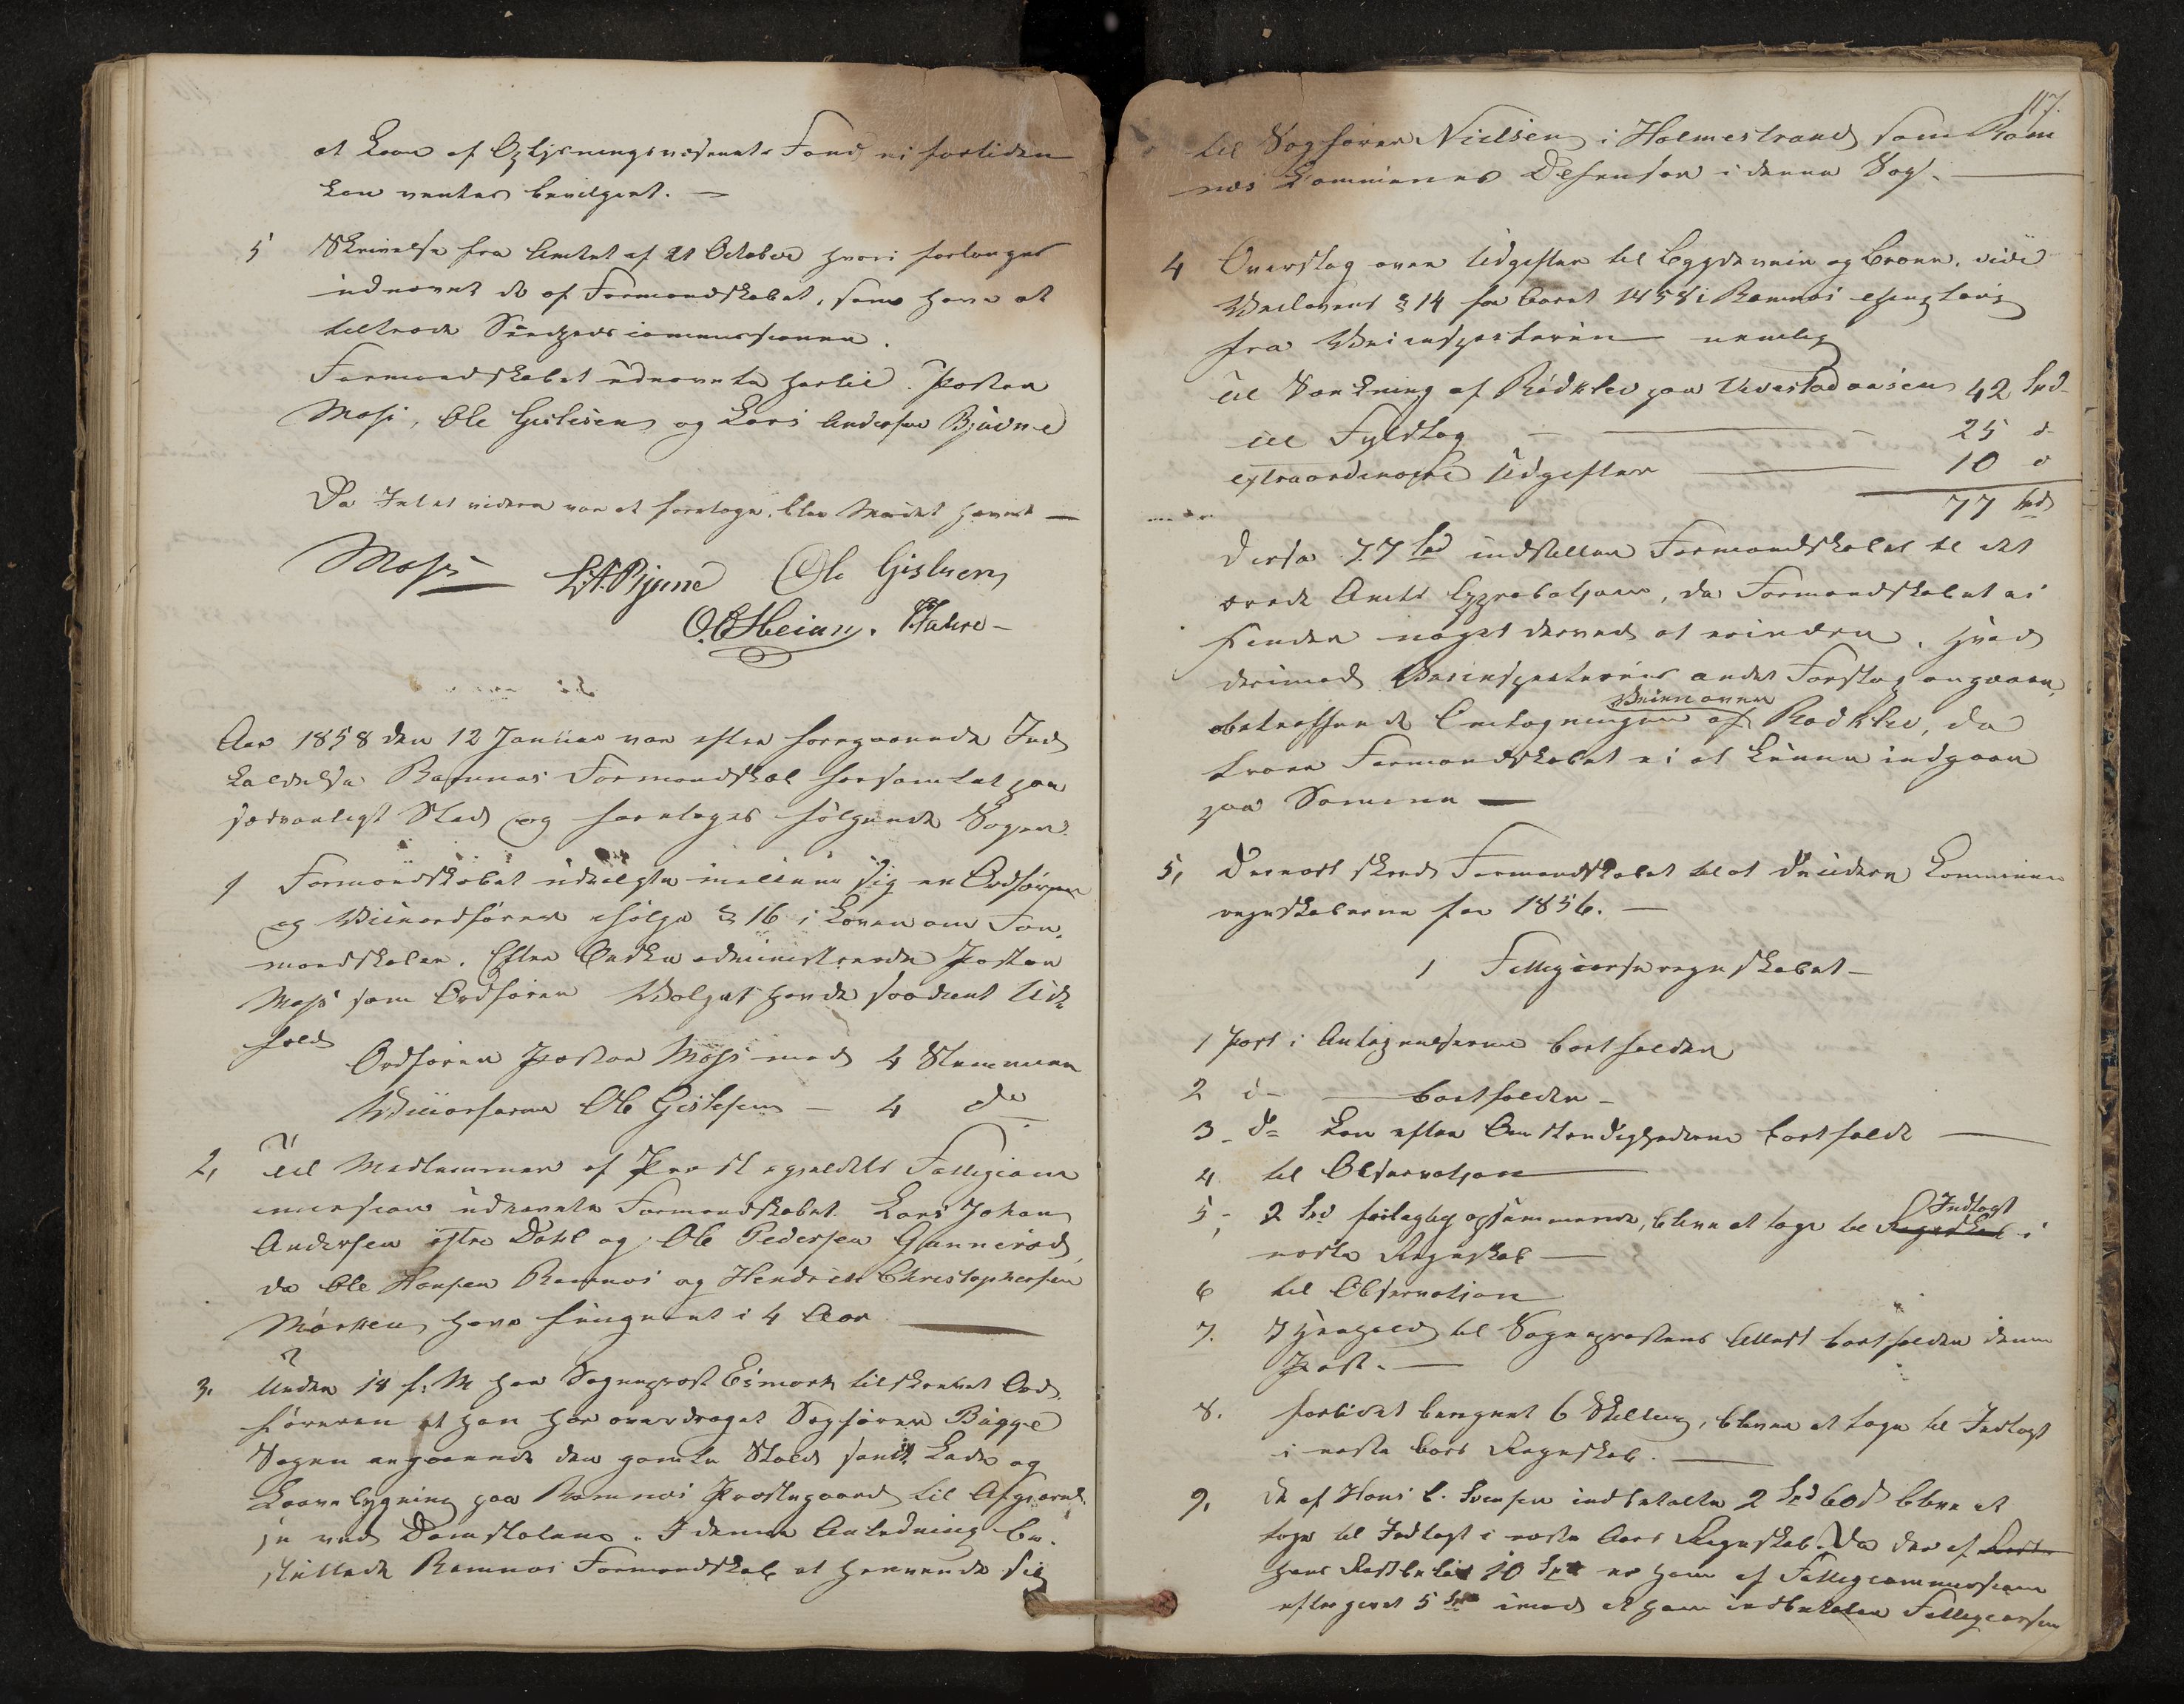 at Laan af Oplysningsvæsenets Fond ei fortiden
kan ventes bevilget. —
5 Skrivelse fra Amtet af 21 October hvori forlanges
udnævnt de af Formandskabet, som have at
tiltræde Sundhedscommissionen.
Formandskabet udnævnte hertil: Pastor
Moss, Ole Gislesen og Lars Andersen Bjuine
Da Intet videre var at foretage, blev Mødet hævet —
Moss L.A.Bjune Ole Gislesen
O. Heian.
Aar 1858 den 12 Januar var efter foregaaende Ind
kaldelse Ramnæs Formandskab forsamlet paa
sædvanligt Sted og foretoges følgende Sager.
1 Formandskabet udvalgte mellem sig en Ordfører
og Viceordfører ifølge § 16 i Loven om For,
mandskaber. Efter Ønske administrerede Pastor
Moss som Ordfører Valget havde saadant Ud,
fald
Ordfører Pastor Moss med 4 Stemmer
Viceorfører Ole Gislesen — 4 do
2, Til Medlemmer af Præstegjeldets Fattigcom
mission udnævnte Formandskabet Lars Johan
Andersen østre Dahl og Ole Pedersen Gunnerød,
da Ole Hansen Ramnæs og Hendrik Christophersen
Mørken have fungeret i 4 Aar —
3. Under 18 f. M har Sogneprest Esmark tilskrevet Ord,
føreren at han har overdraget Sagfører Bugge
Sagen angaaende den gamle Stald samt Lade og
Laavebygning paa Ramnæs Præstegaard til Afgjørel,
se ved Domstolene. I denne Anledning be,
sluttede Ramnæs Formandskab at henvende sig
117.
til Sagfører Nielsen i Holmestrand som Ram
næs Communes Defensor i denne Sag. —
4 Overslag over Udgifter til Bygdeveie og Broer, vide
Veilovens § 14 for Aaret 1858 i Ramnæs Thinglaug
fra Veiinspecteuren nemlig
til Sænkning af Rødklev paa Reverstadaasen 42 Spd
til Fyldtag — — — 25 d
extraordinaire Udgifter — 10 d
77 Spd
Disse 77 Spd indstiller Formandskabet til det
ærede Amts Approbation, da Formandskabet ei
finder noget derved at erindre. Hvad
derimod Veiinspecteurens andet Forslag angaaer,
Veien over
betreffende Omlægningen af Rødklev, da
troer Formandskabet ei at kunne indgaae
paa Samme —
5, Dernæst skred Formandskabet til at decidere Commune
regnskaberne for 1856. —
1 Fattigcasseregnskabet —
1 Post i Antegnelserne bortfalder
2 d — bortfalder —
3 - d= kan efter Omstændighederne bortfalde —
4. til Observation —
Indtægt
5 - 2 Spd feilagtig opsummerede, bliver at tage til Regnskab i
næste Regnskab —
6 til Observation
7. I Henhold til Sogneprestens Attest bortfalder denne
Post. —
8. forlidet beregnet 6 Skilling, bliver at tage til Indtægt
i næste Aars Regnskab. —
9, De af Hans C. Svensen indbetalte 2 Spd 60 s blive at
tage til Indtægt i næste Aars Regnskab. Da der af Rest
hans Restbeløb 10 Spd er ham af Fattigcommissionen
eftergivet 5 Spd imod at han indbetaler Fattigcassen